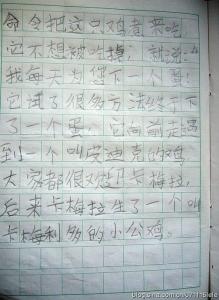 命令把这只鸡煮来吃
它不想被吃掉，就说："
我每天为您下一个蛋！
它试了很多方法终于下
了一个蛋，它向前走遇
到一个叫皮迪克的鸡，
大家都很欢迎卡梅拉，
后来卡梅拉生了一个叫
卡梅利多的小公鸡。